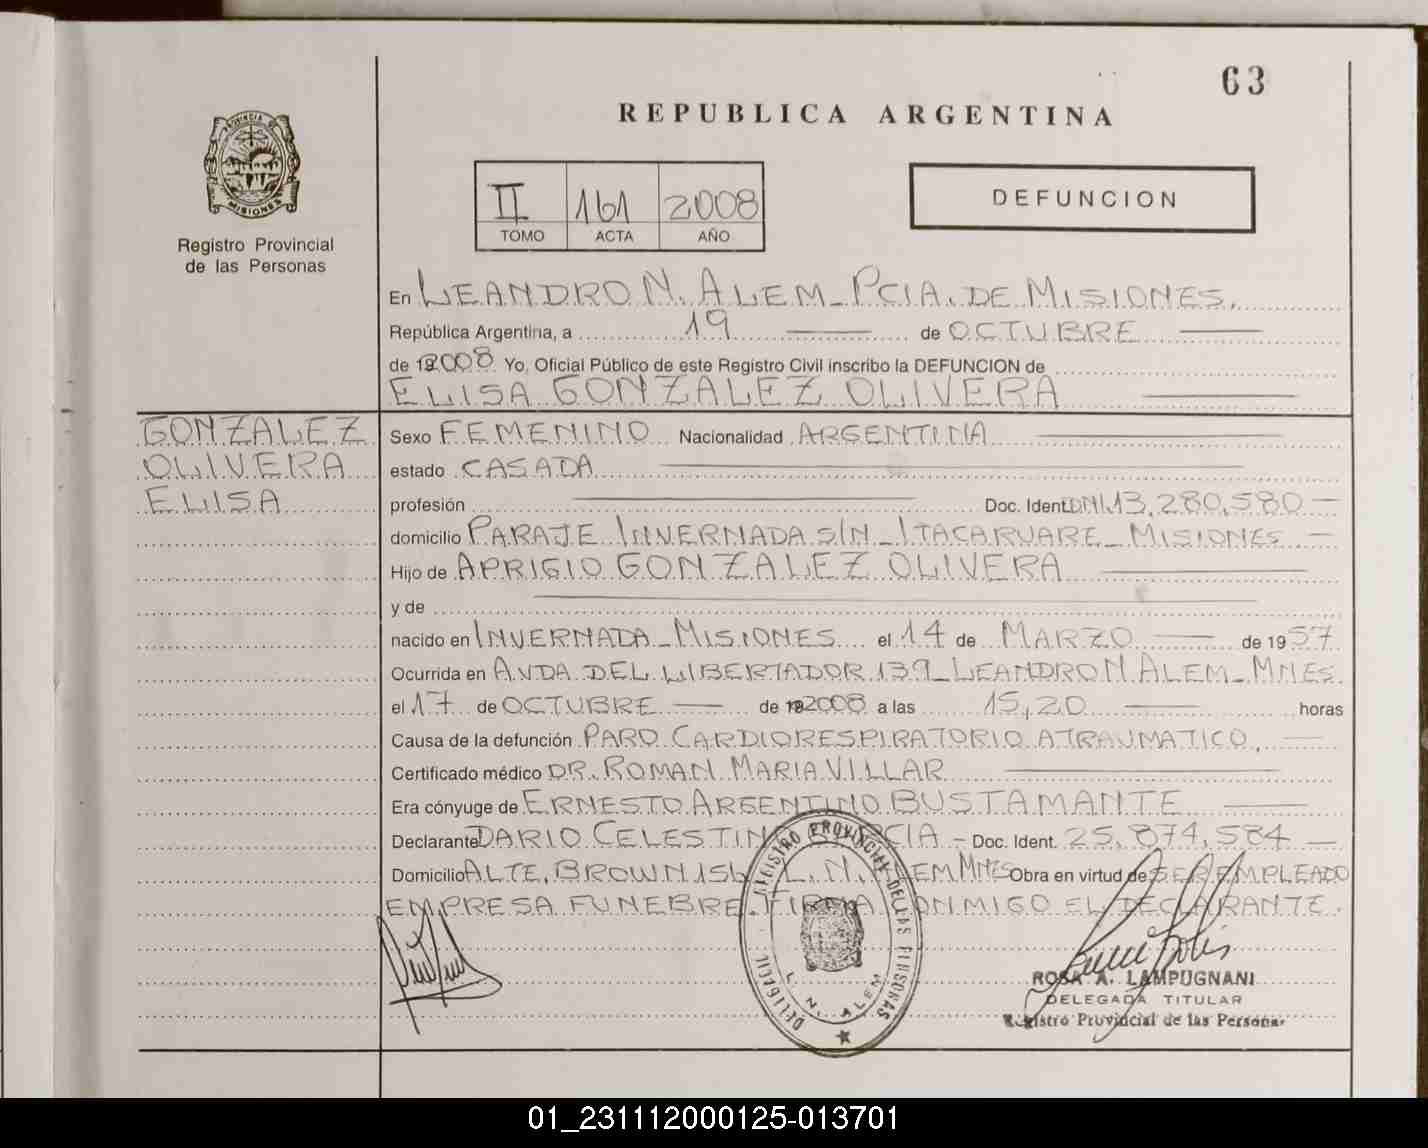 63
REPUBLICA ARGENTINA
PROVINCIA DE
MISIONES
Registro Provincial
de las Personas
II 161 2008
TOMO ACTA AÑO
DEFUNCION
En LEANDRO N. ALEM - PCIA. DE MISIONES.
República Argentina, a 19 de OCTUBRE
de 2008 Yo, Oficial Público de este Registro Civil inscribo la DEFUNCION de
ELISA GONZALEZ OLIVERA
GONZALEZ
OLIVERA
ELISA
Sexo FEMENINO Nacionalidad ARGENTINA
estado CASADA
profesión Doc. Ident. DNI. 13,280,580
domicilio PARAJE INVERNADA S/N - ITACARUARE - MISIONES
Hijo de APRIGIO GONZALEZ OLIVERA
y de
nacido en INVERNADA - MISIONES el 14 de MARZO de 1957
Ocurrida en AVDA DEL LIBERTADOR 139 - LEANDRO N. ALEM - MNES.
el 17 de OCTUBRE de 2008 a las 15,20 horas
Causa de la defunción PARO CARDIORESPIRATORIO ATRAUMATICO.
Certificado médico DR. ROMAN MARIA VILLAR
Era cónyuge de ERNESTO ARGENTINO BUSTAMANTE
Declarante DARIO CELESTINO GARCIA - Doc. Ident. 25,874,584
Domicilio ALTE. BROWN 156 L. N. ALEM MNES Obra en virtud de SER EMPLEADO
EMPRESA FUNEBRE. FIRMA CONMIGO EL DECLARANTE.
REGISTRO PROVINCIAL DE LAS PERSONAS
DELEGACION
L. N. ALEM
ROSA A. LAMPUGNANI
DELEGADA TITULAR
Registro Provincial de las Personas
01_231112000125-013701